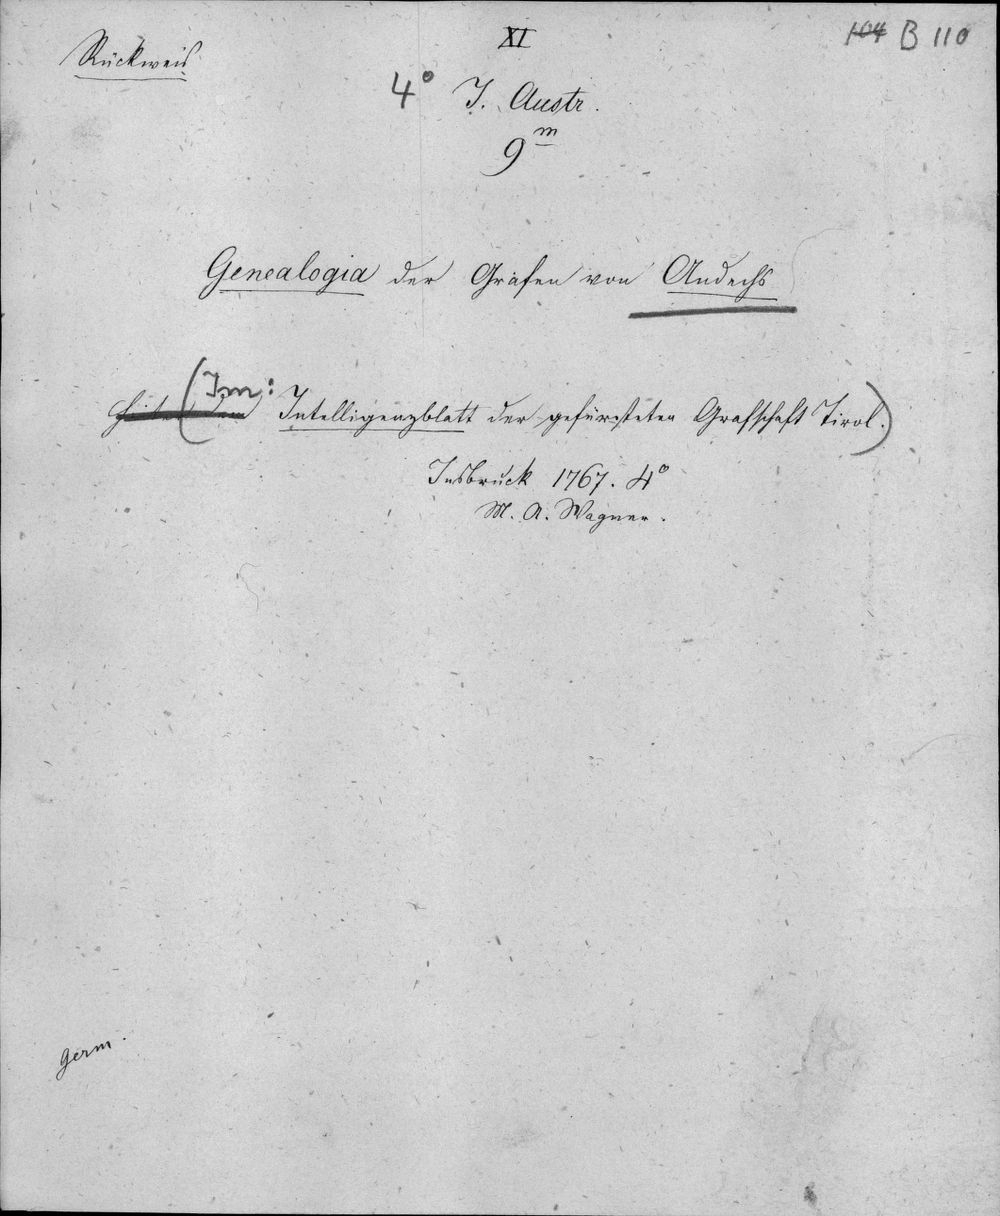 Rückweis
XI
104 B 110
4° J. Austr.
9 m
Genealogia der Grafen von Andechs
(Im: Intelligenzblatt der gefürsteten Grafschaft Tirol.)
Insbruck 1767. 4°
M. A. Wagner.
germ.